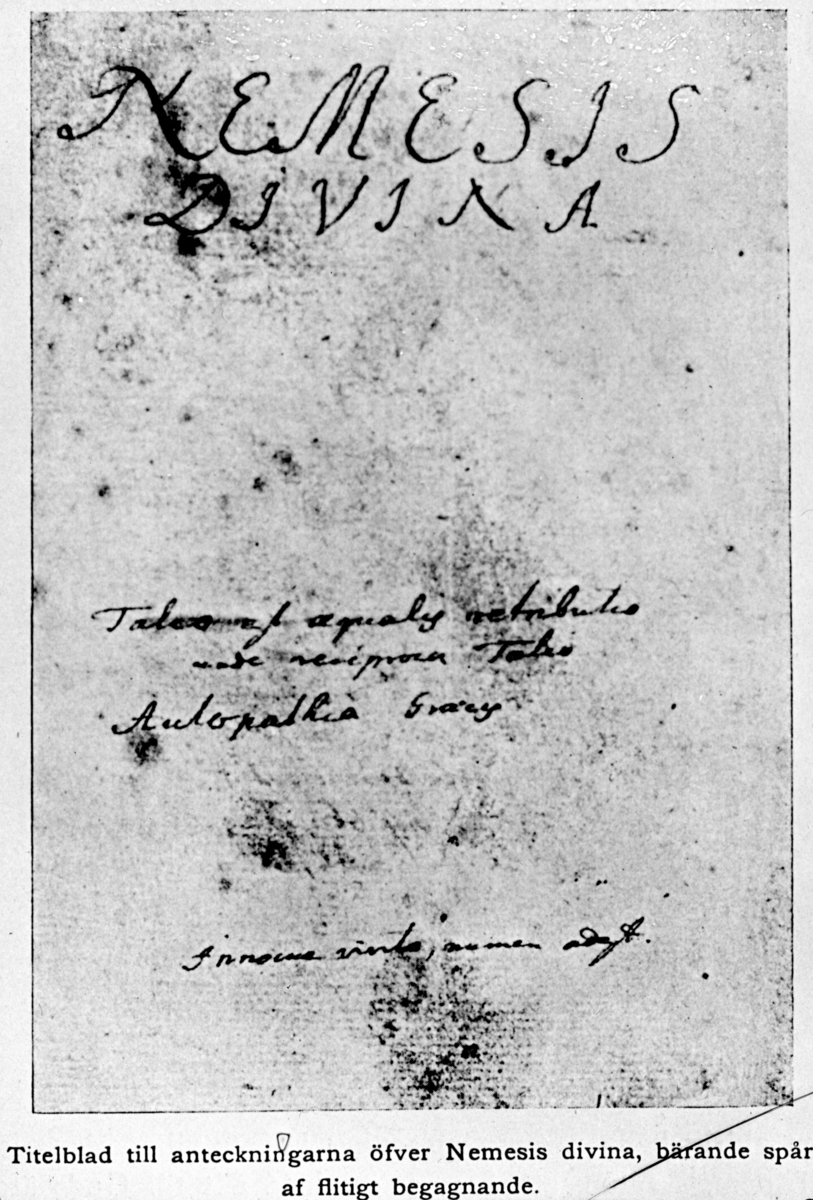 NEMESIS
DIVINA
Talio est æqualis retributio
unde reciproca Talio
Autopathia Græcis
Innocue vivito, numen adest.
Titelblad till anteckningarna öfver Nemesis divina, bärande spår
af flitigt begagnande.